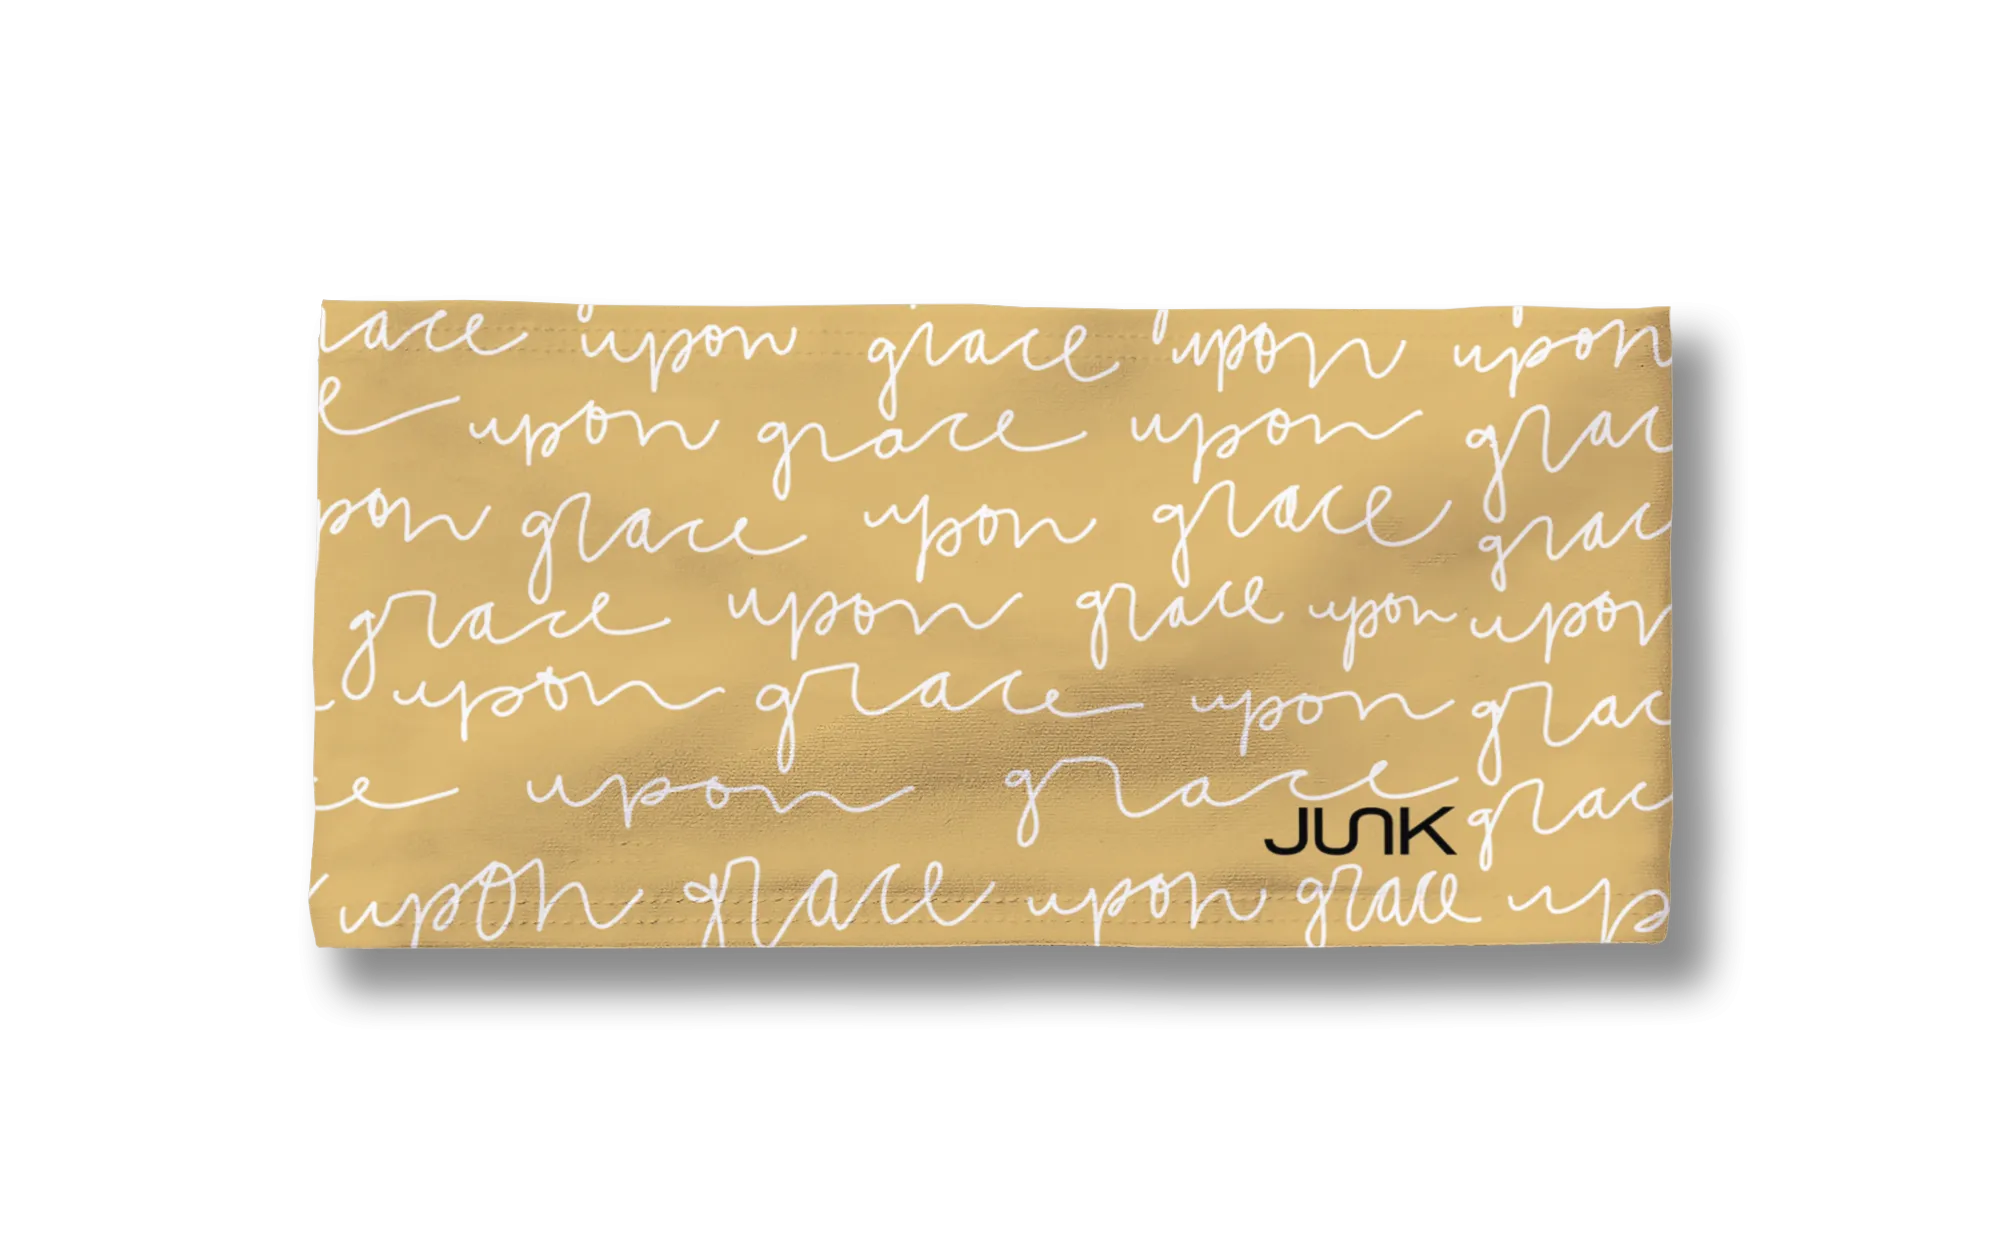 race upon grace upon upon
e upon grace upon grac
pon grace upon grace grac
grace upon grace upon upon
upon grace upon grac
ce upon grace grac
JUNK
upon grace upon grace up